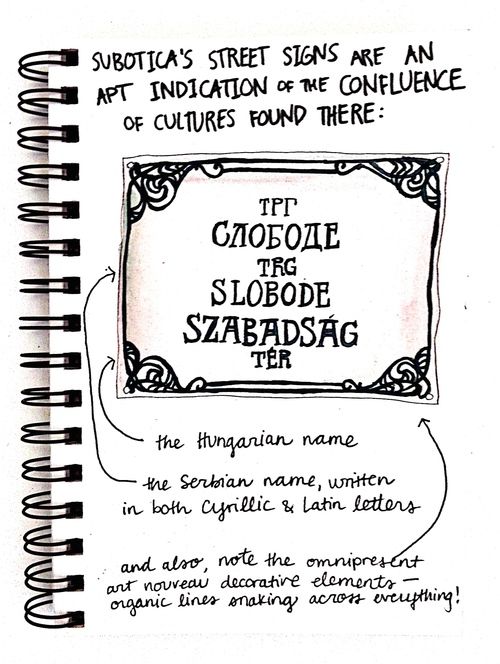 SUBOTICA'S STREET SIGNS ARE AN
APT INDICATION OF THE CONFLUENCE
OF CULTURES FOUND THERE:
ТРГ
СЛОБОДЕ
TRG
SLOBODE
SZABADSÁG
TÉR
the Hungarian name
the Serbian name, written
in both Cyrillic & Latin letters
and also, note the omnipresent
art nouveau decorative elements —
organic lines snaking across everything!